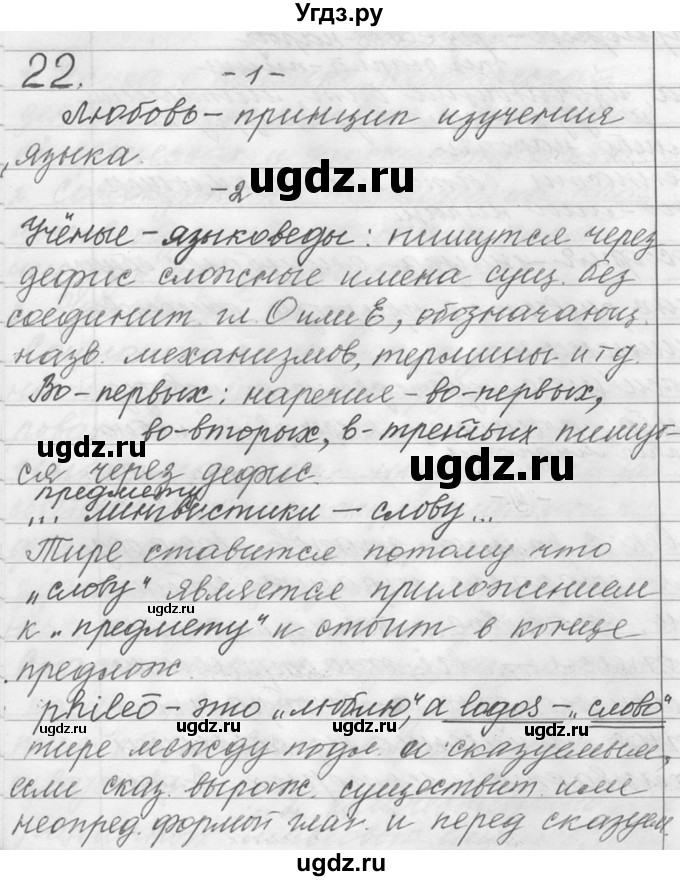 Угдз.ру
22.
-1-
Любовь - принцип изучения
языка.
ugdz.ru
-2
Учёные - языковеды: пишутся через
дефис сложные имена сущ. без
соединит. гл. О или Е, обозначающ.
назв. механизмов, термины и т д.
Во-первых: наречия - во-первых,
во-вторых, в-третьих пишут-
ugdz.ru
ugdz.ru
ся через дефис.
предмету
... лингвистики - слову...
Тире ставится потому что
„слову" является приложением
ugdz.ru
ugdz.ru
к „предмету" и стоит в конце
предлож.
phileō - это „люблю", а logos - „слово"
ugdz.ru
ugdz.ru
ugdz.ru
тире между подл. и сказуемым,
если сказ. выраж. существит. или
неопред. формой глаг. и перед сказуем.
ugdz.ru